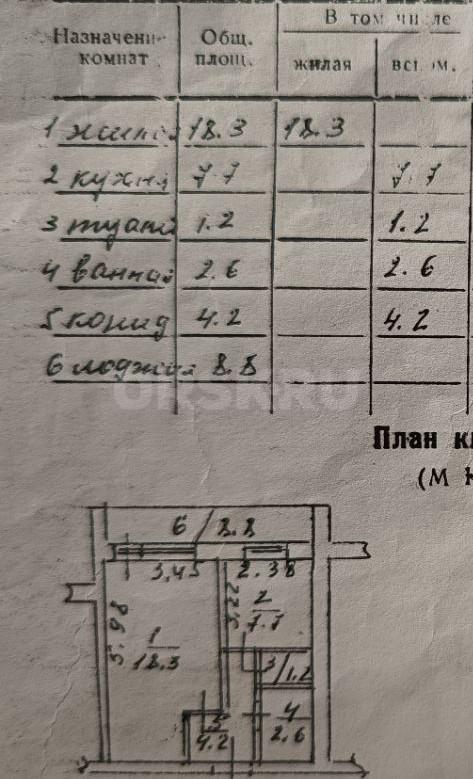 Назначени комнат Общ. площ. В том числе
жилая вспом.
1 жилая 18.3 18.3
2 кухня 7.7 7.7
3 туал 1.2 1.2
4 ванная 2.6 2.6
5 корид 4.2 4.2
6 лоджия 8.8
ORSK.RU
План к
(М
6/8.8
3,45 2.38
5.98 1/18.3 3,22 2/7.7
3/1.2
5/4.2 4/2.6